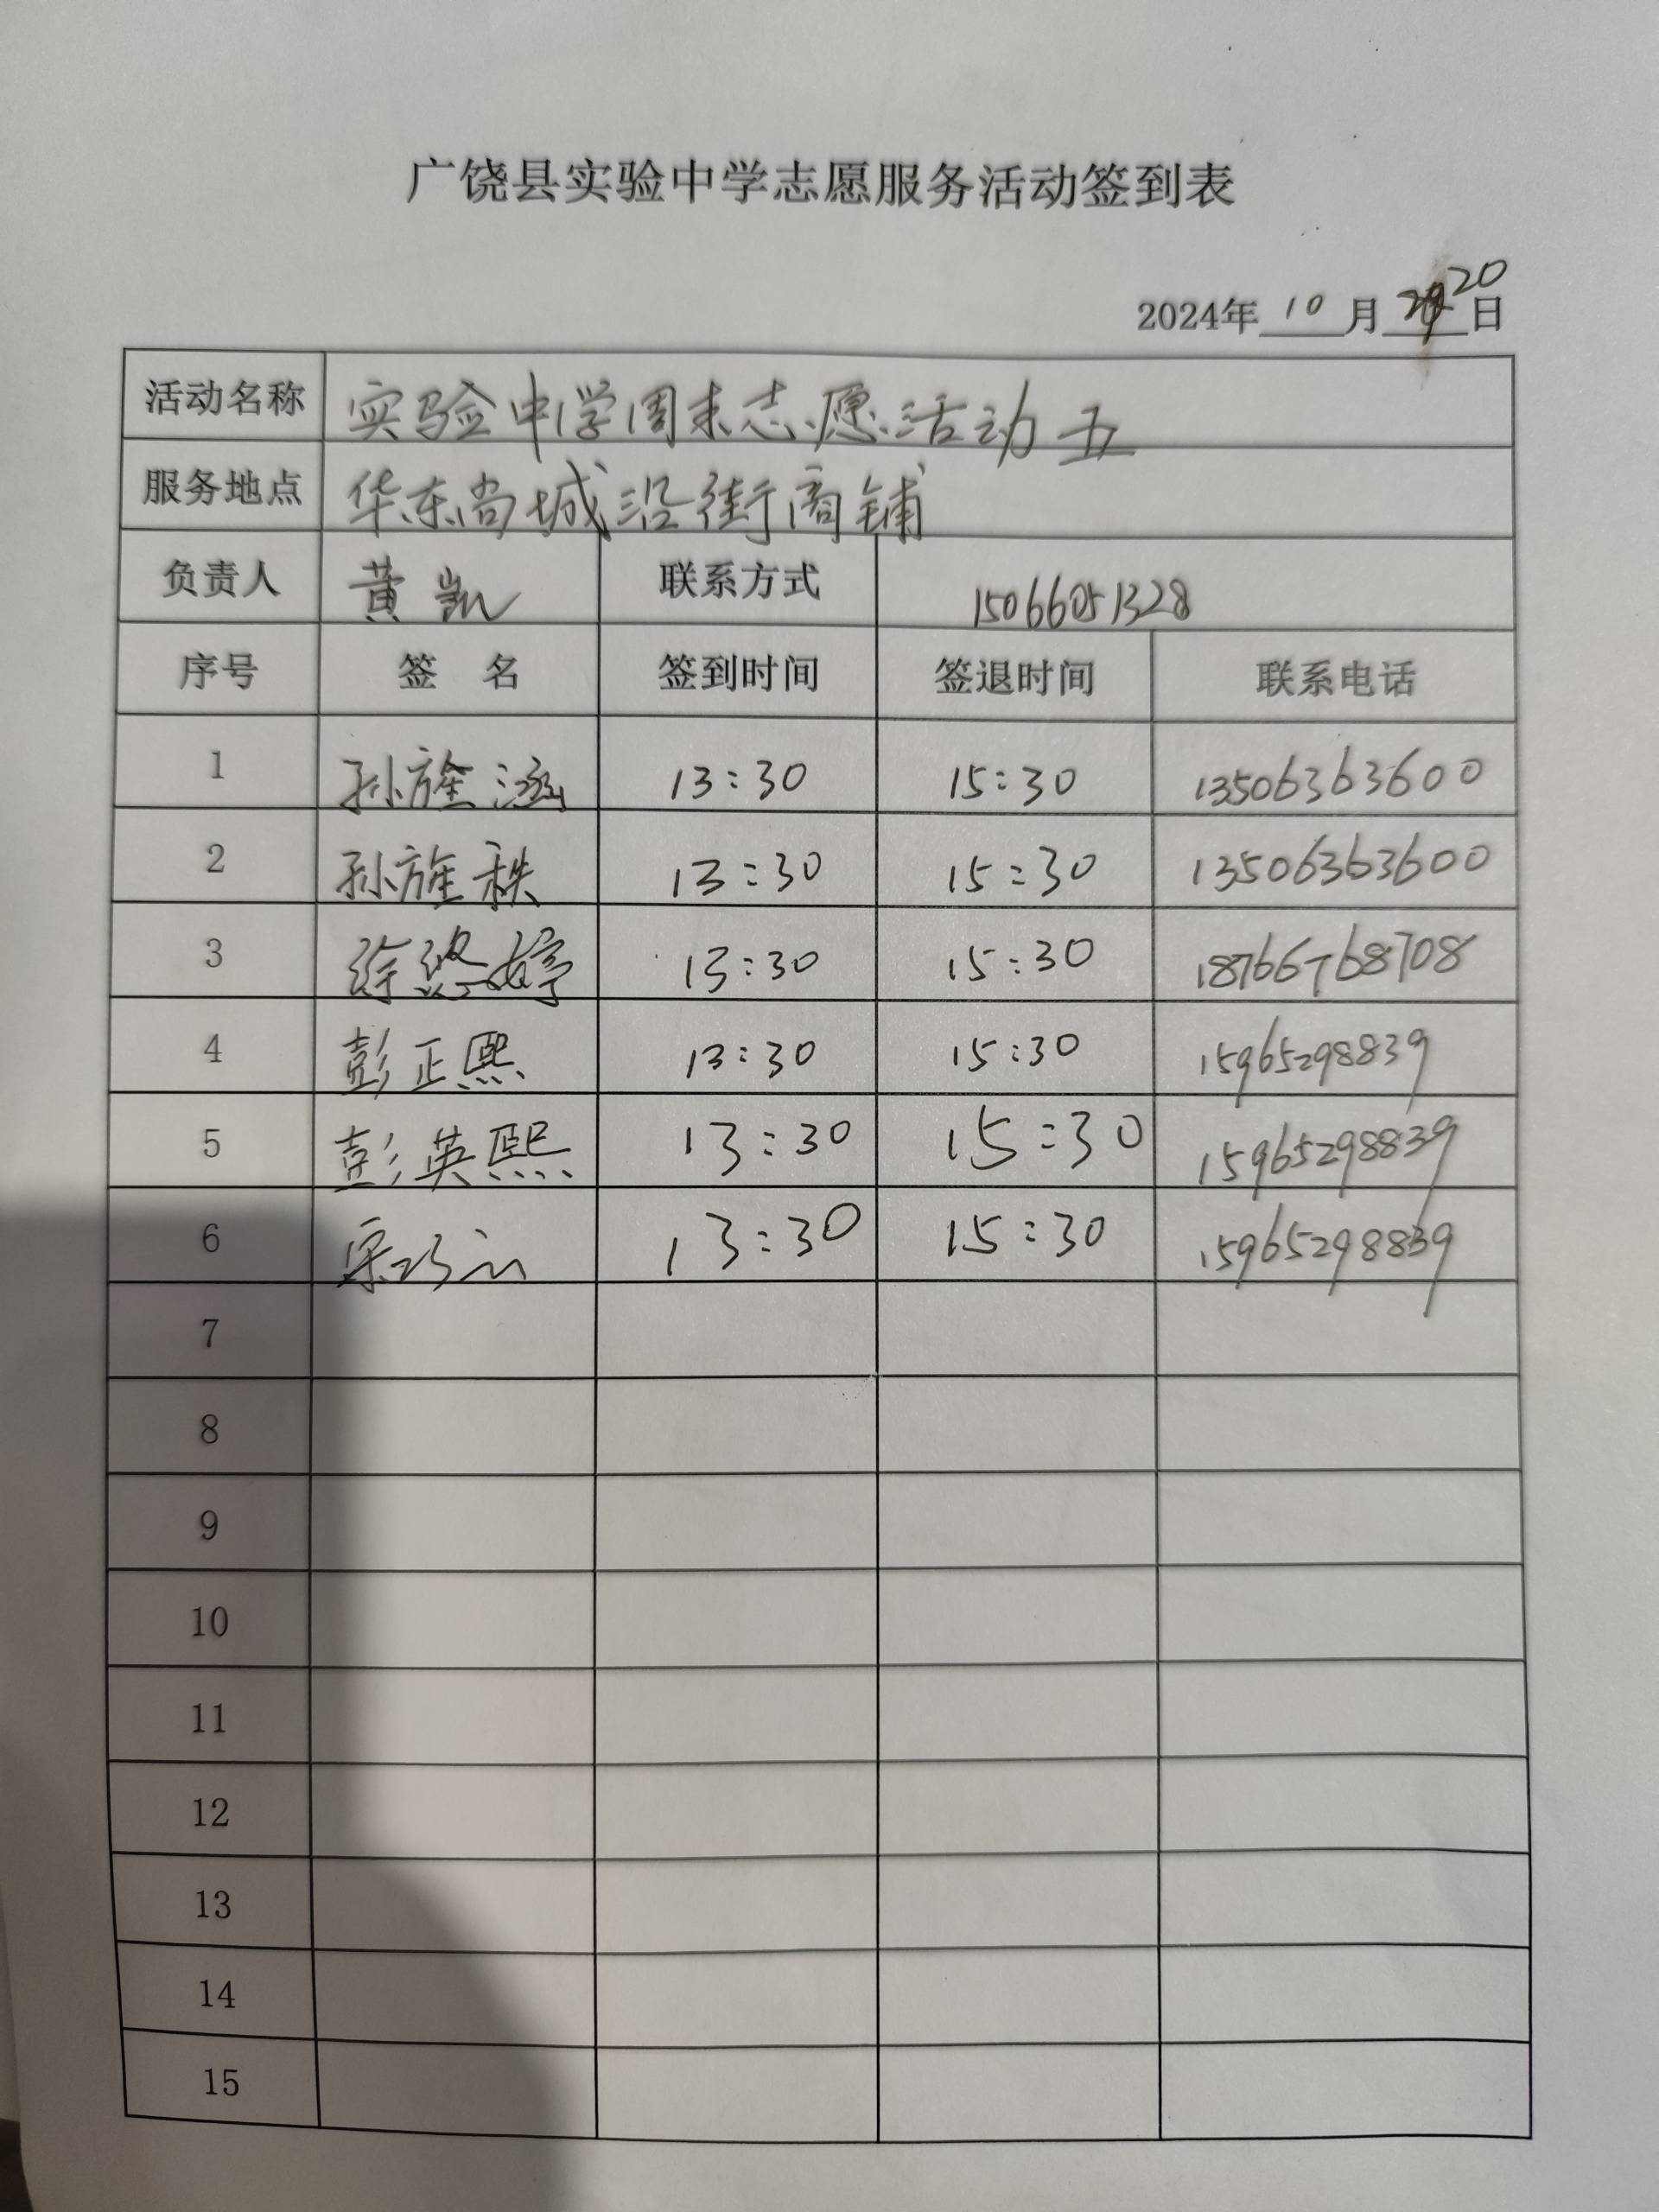 广饶县实验中学志愿服务活动签到表
2024年 10 月 20 日
活动名称 实验中学周末志愿活动五
服务地点 华东尚城沿街商铺
负责人 黄凯 联系方式 15066051328
序号 签 名 签到时间 签退时间 联系电话
1 孙旌涵 13:30 15:30 13506363600
2 孙旌秩 13:30 15:30 13506363600
3 徐悠婷 13:30 15:30 18766768708
4 彭正熙 13:30 15:30 15965298839
5 彭英熙 13:30 15:30 15965298839
6 13:30 15:30 15965298839
7
8
9
10
11
12
13
14
15